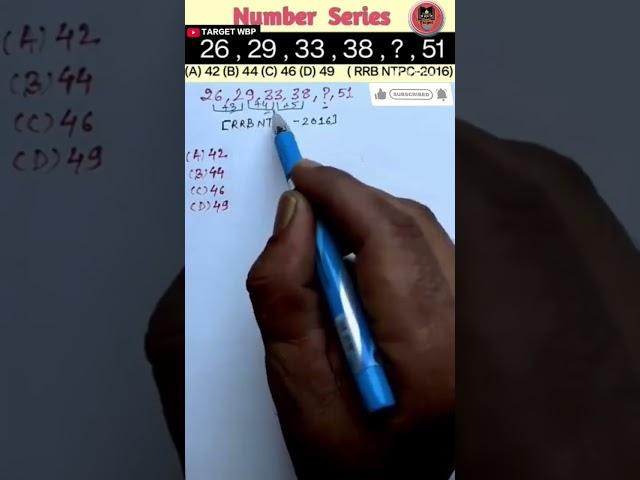 Number Series
TARGET WBP
26, 29, 33, 38, ?, 51
(A) 42 (B) 44 (C) 46 (D) 49 (RRB NTPC-2016)
26, 29, 33, 38, ?, 51
+3 +4 +5
SUBSCRIBED
[RRB NT -2016]
(A) 42
(B) 44
(C) 46
(D) 49
(A) 42
(B) 44
(C) 46
(D) 49